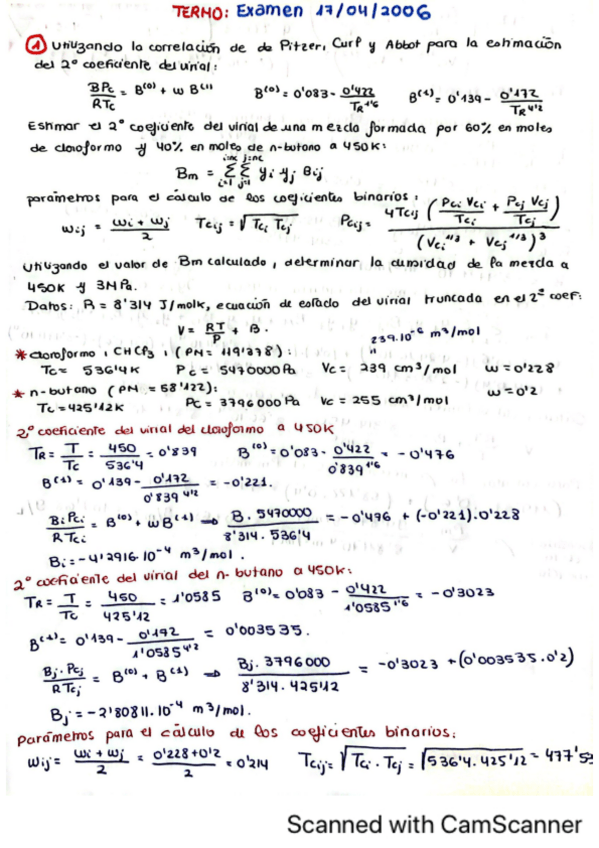 TERMO: Examen 17/04/2006
① Utilizando la correlación de de Pitzer, Curl y Abbot para la estimación
del 2º coeficiente del virial:
BPc/RTc = B(0) + ω B(1)    B(0) = 0'083 - 0'422/TR^1'6    B(1) = 0'139 - 0'172/TR^4'2
Estimar el 2º coeficiente del virial de una mezcla formada por 60% en moles
de cloroformo y 40% en moles de n-butano a 450K:
Bm = Σ(i=1, i=nc) Σ(j=1, j=nc) yi yj Bij
parámetros para el cálculo de los coeficientes binarios:
ωij = (ωi + ωj)/2    Tcij = √(Tci Tcj)    Pcij = 4Tcij (Pci Vci/Tci + Pcj Vcj/Tcj) / (Vci^1/3 + Vcj^1/3)^3
Utilizando el valor de Bm calculado, determinar la densidad de la mezcla a
450K y 3MPa.
Datos: R = 8'314 J/molK, ecuación de estado del virial truncada en el 2º coef:
V = RT/P + B.
239.10^-6 m³/mol
* cloroformo, CHCl3, (PM = 119'378):
Tc = 536'4K    Pc = 5470000Pa    Vc = 239 cm³/mol    ω = 0'228
* n-butano (PM = 58'122):
Tc = 425'12K    Pc = 3796000Pa    Vc = 255 cm³/mol    ω = 0'2
2º coeficiente del virial del cloroformo a 450K
TR = T/Tc = 450/536'4 = 0'839    B(0) = 0'083 - 0'422/0'839^1'6 = -0'476
B(1) = 0'139 - 0'172/0'839^4'2 = -0'221.
Bi Pci/R Tci = B(0) + ωB(1) → B. 5470000/8'314. 536'4 = -0'476 + (-0'221).0'228
Bi = -4'2916.10^-4 m³/mol.
2º coeficiente del virial del n-butano a 450K:
TR = T/Tc = 450/425'12 = 1'0585    B(0) = 0'083 - 0'422/1'0585^1'6 = -0'3023
B(1) = 0'139 - 0'172/1'0585^4'2 = 0'003535.
Bj. Pcj/R Tcj = B(0) + B(1) → Bj. 3796000/8'314. 425'12 = -0'3023 + (0'003535.0'2)
Bj = -2'80811.10^-4 m³/mol.
Parámetros para el cálculo de los coeficientes binarios:
ωij = (ωi + ωj)/2 = (0'228+0'2)/2 = 0'214    Tcij = √(Tci . Tcj) = √(536'4. 425'12) = 477'5
Scanned with CamScanner